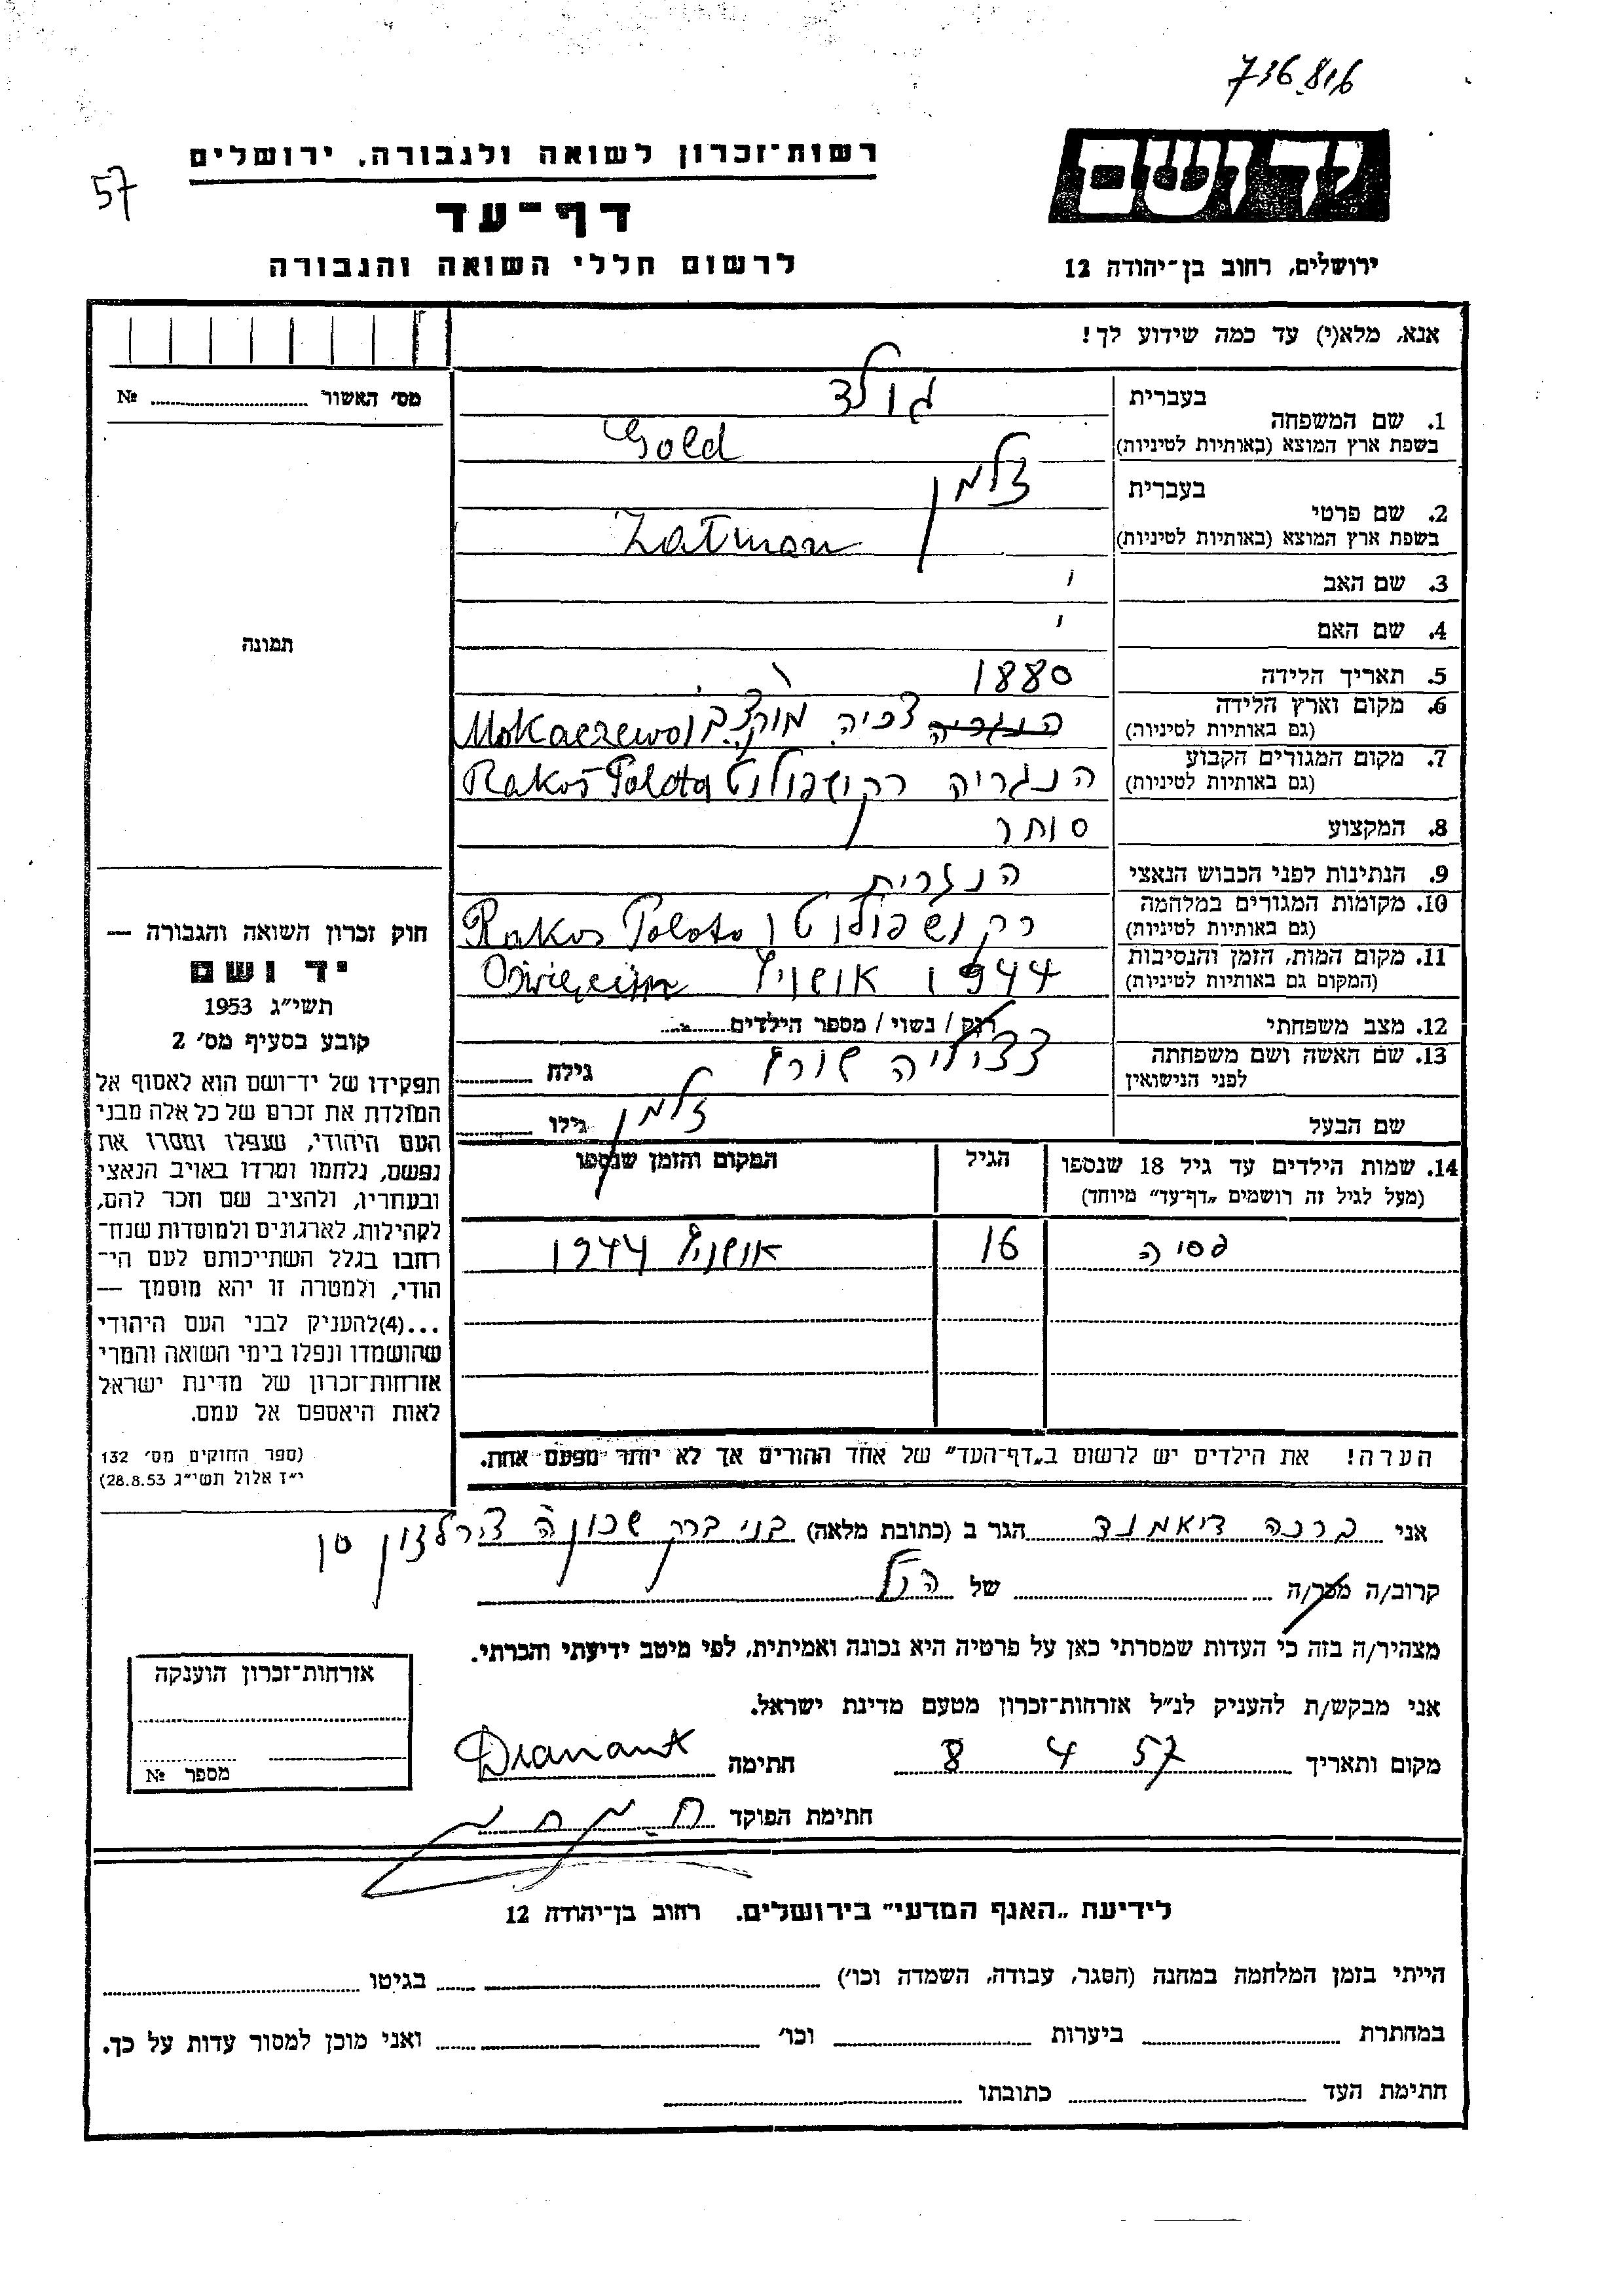 736816
57
רשות־זכרון לשואה ולגבורה, ירושלים
דף־עד
לרשום חללי השואה והגבורה
יד ושם
ירושלים, רחוב בן־יהודה 12
אנא, מלא(י) עד כמה שידוע לך!
מס׳ האשור № 
תמונה
1. שם המשפחה בעברית גולד
בשפת ארץ המוצא (באותיות לטיניות) Gold
2. שם פרטי בעברית זלמן
בשפת ארץ המוצא (באותיות לטיניות) Zatman
3. שם האב
4. שם האם
5. תאריך הלידה 1880
6. מקום וארץ הלידה
(גם באותיות לטיניות) Mokaczewo
7. מקום המגורים הקבוע הנגריה רקושפולוט
(גם באותיות לטיניות) Rakos Polota
8. המקצוע סוחר
9. הנתינות לפני הכבוש הנאצי הנגרית
10. מקומות המגורים במלחמה רקושפולוט
(גם באותיות לטיניות) Rakos Polota
11. מקום המות, הזמן והנסיבות 1944 אושויץ
(המקום גם באותיות לטיניות) Oświęcim
12. מצב משפחתי רוק / נשוי / מספר הילדים
13. שם האשה ושם משפחתה צציליה שורץ גילה
לפני הנישואין
שם הבעל זלמן גילו
14. שמות הילדים עד גיל 18 שנספו הגיל המקום והזמן שנספו
(מעל לגיל זה רושמים „דף־עד” מיוחד)
16 אושויץ 1944
הערה! את הילדים יש לרשום ב„דף־העד” של אחד ההורים אך לא יותר מפעם אחת.
חוק זכרון השואה והגבורה —
יד ושם
תשי״ג 1953
קובע בסעיף מס׳ 2
תפקידו של יד־ושם הוא לאסוף אל
המולדת את זכרם של כל אלה מבני
העם היהודי, שנפלו ומסרו את
נפשם, נלחמו ומרדו באויב הנאצי
ובעוזריו, ולהציב שם וזכר להם,
לקהילות, לארגונים ולמוסדות שנח־
רבו בגלל השתייכותם לעם הי־
הודי, ולמטרה זו יהא מוסמך —
...(4)להעניק לבני העם היהודי
שהושמדו ונפלו בימי השואה והמרי
אזרחות־זכרון של מדינת ישראל
לאות היאספם אל עמם.
(ספר החוקים מס׳ 132
י״ז אלול תשי״ג 28.8.53)
אני ברכה דיאמנד הגר ב (כתובת מלאה) בני ברק שכונה
קרוב/ה מכר/ה של הנ״ל
מצהיר/ה בזה כי העדות שמסרתי כאן על פרטיה היא נכונה ואמיתית, לפי מיטב ידיעתי והכרתי.
אני מבקש/ת להעניק לנ״ל אזרחות־זכרון מטעם מדינת ישראל.
מקום ותאריך 57 4 8 חתימה
חתימת הפוקד
אזרחות־זכרון הוענקה
מספר №
לידיעת „האגף המדעי” בירושלים. רחוב בן־יהודה 12
הייתי בזמן המלחמה במחנה (הסגר, עבודה, השמדה וכו׳) בגיטו
במחתרת ביערות וכו׳ ואני מוכן למסור עדות על כך.
חתימת העד כתובתו